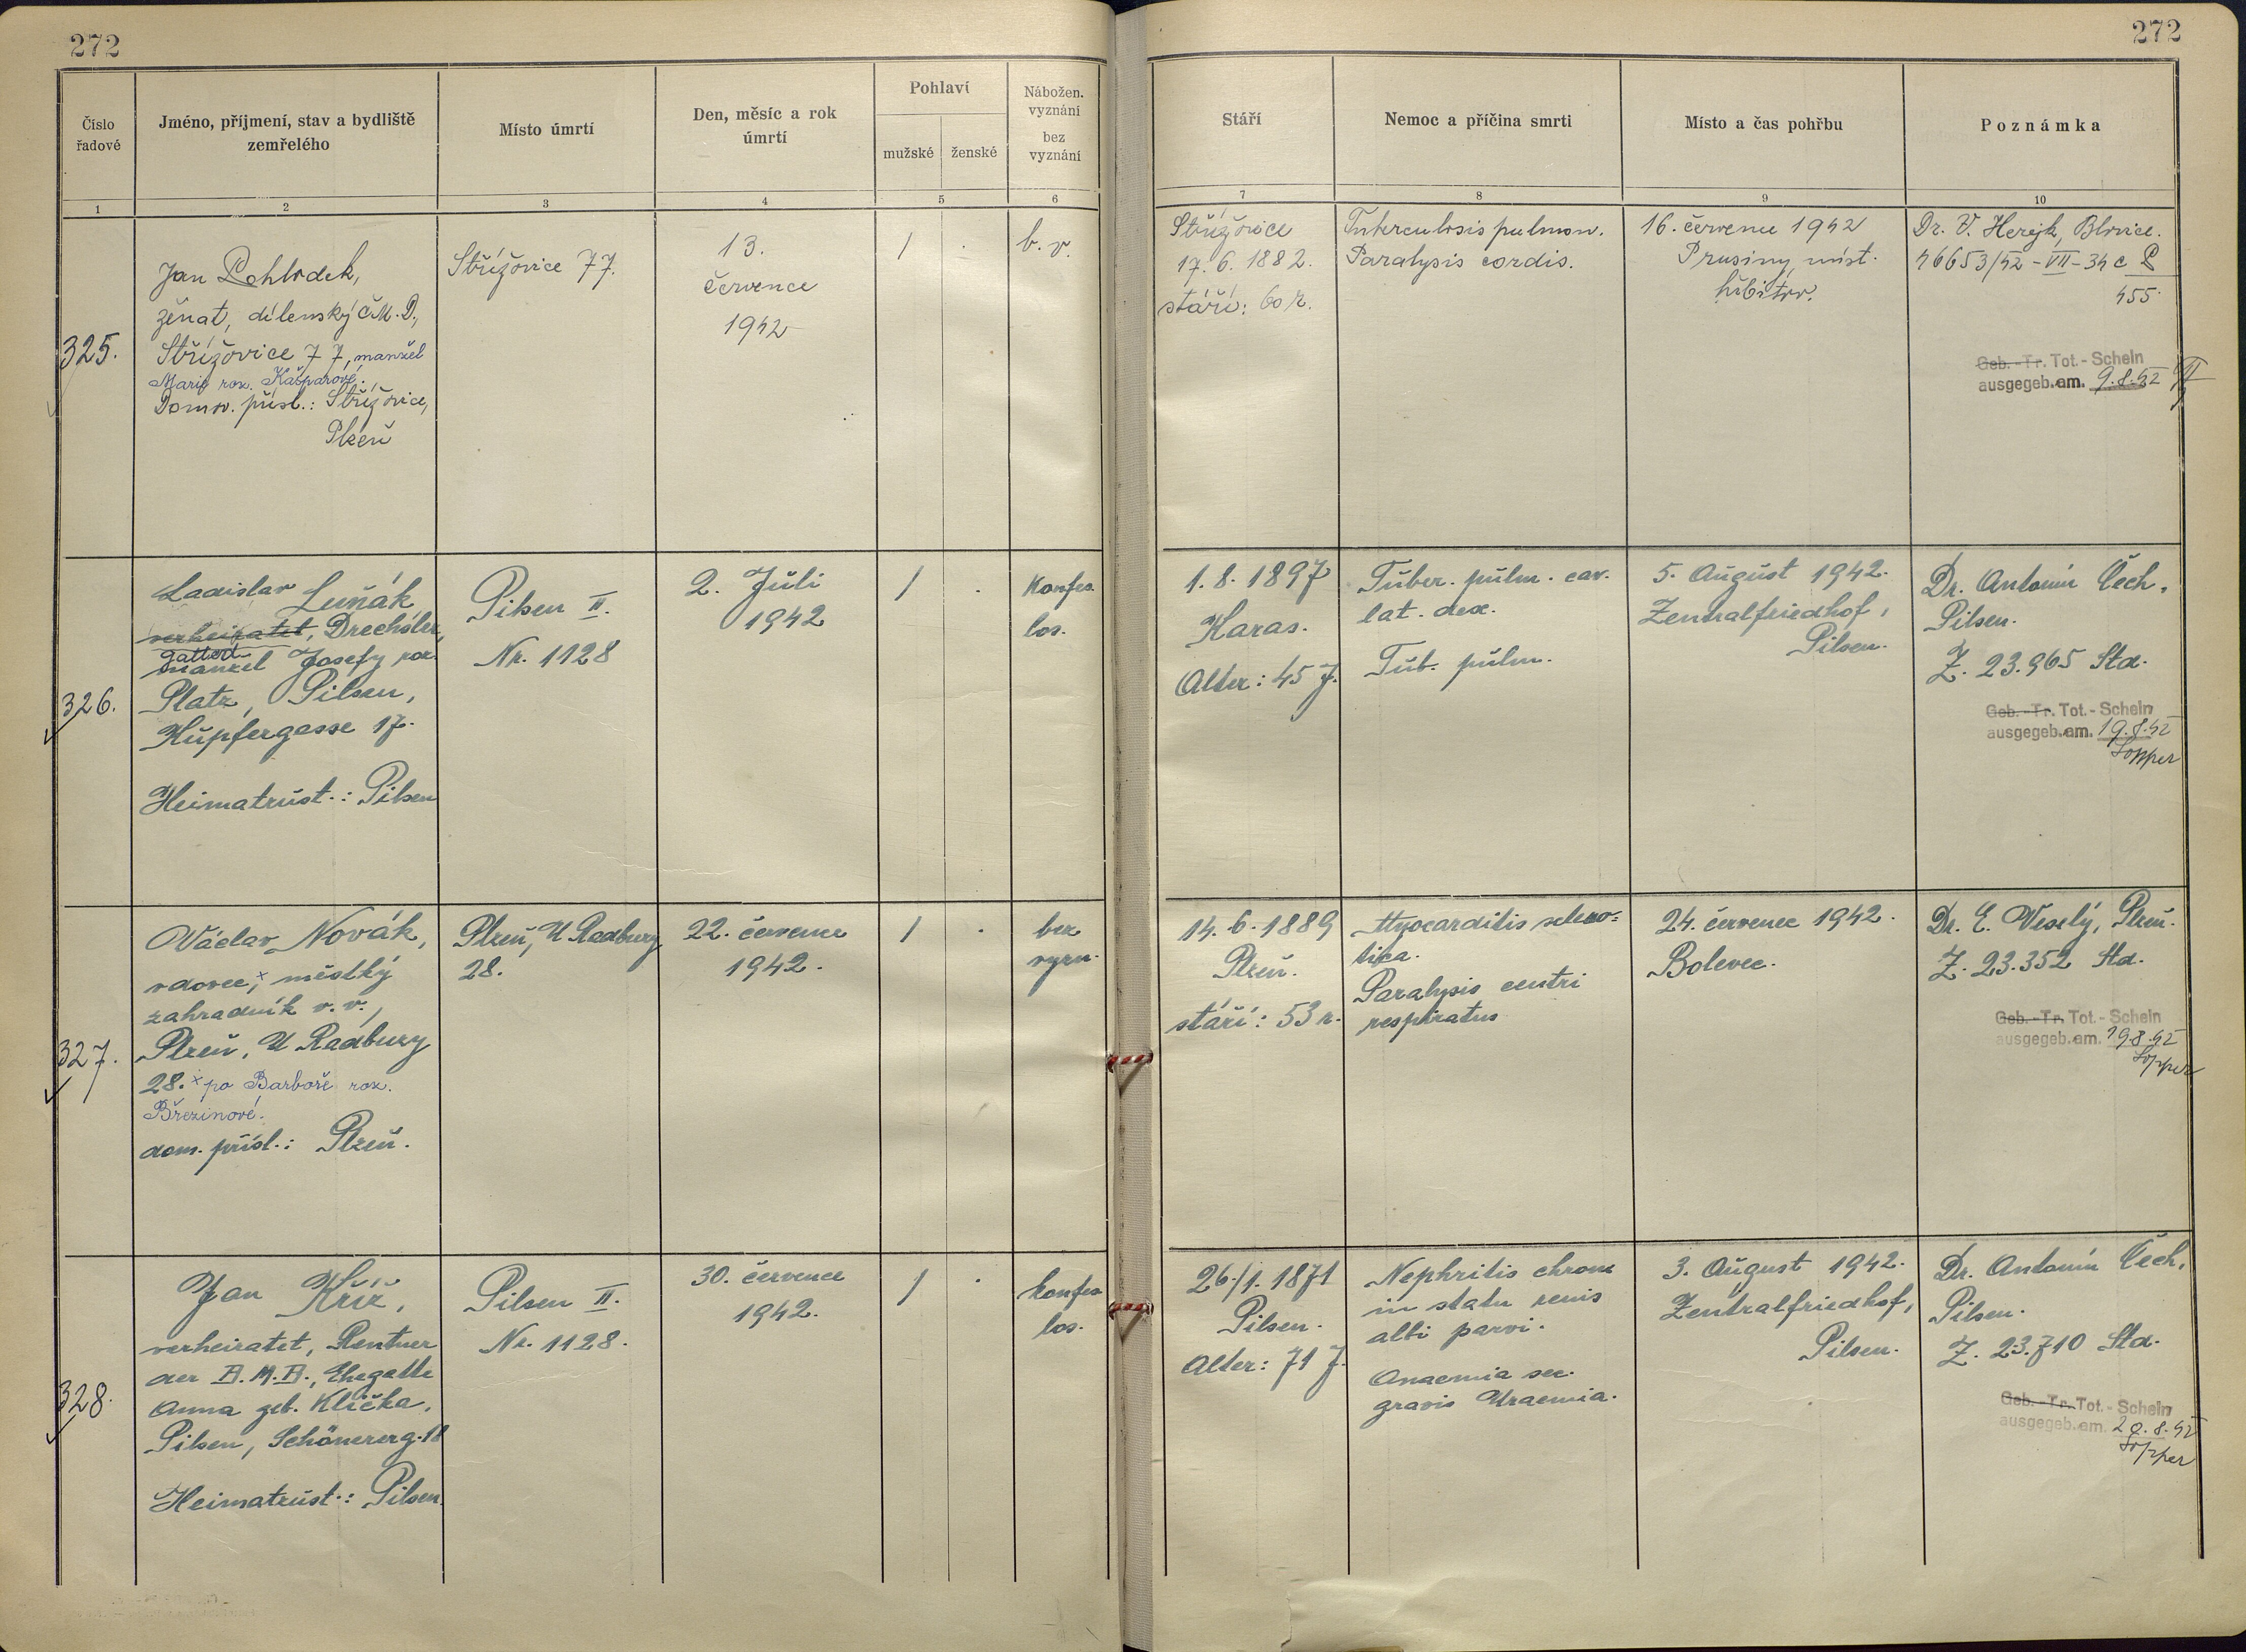 272
Číslo řadové
Jméno, příjmení, stav a bydliště zemřelého
Místo úmrtí
Den, měsíc a rok úmrtí
Pohlaví
mužské
ženské
Nábožen. vyznání
bez vyznání
1
2
3
4
5
6
325.
Jan Pohlodek,
ženat, dílenský ČM.D.,
Střížovice 77, manžel
Marie roz. Kašparové.
Domov. přísl.: Střížovice,
Plzeň
Střížovice 77.
13.
července
1942
/
.
b. v.
326.
Ladislav Luňák
verheiratet, Drechsler,
gatte d.
manžel Josefy roz.
Platz, Pilsen,
Kupfergasse 17.
Heimatzust.: Pilsen
Pilsen II.
Nr. 1128
2. Juli
1942
/
.
Konfes.
los.
327.
Václav Novák,
vdovec,× městký
zahradník v. v.,
Plzeň, U Radbuzy
28. × po Barboře roz.
Březinové.
dom. přísl.: Plzeň.
Plzeň, U Radbuzy
28.
22. července
1942.
/
.
bez
vyzn.
328.
Jan Kříž,
verheiratet, Rentner
der B.M.B., Ehegatte
Anna geb. Klička,
Pilsen, Schönererg. 18
Heimatzust.: Pilsen
Pilsen II.
Nr. 1128.
30. července
1942.
/
.
konfes
los.
272
Stáří
Nemoc a příčina smrti
Místo a čas pohřbu
Poznámka
7
8
9
10
Střížovice
17. 6. 1882.
stáří: 60 r.
Tuberculosis pulmon.
Paralysis cordis.
16. července 1942
Prusiny, míst.
hřbitov.
Dr. V. Herejk, Blovice.
46653/42 - VII - 34 c P
455.
Geb.-Tr. Tot.- Schein
ausgegeb. am. 9.8.42
1. 8. 1897
Haras.
Alter: 45 J.
Tuber. pulm. cav.
lat. dex.
Tub. pulm.
5. August 1942.
Zentralfriedhof,
Pilsen.
Dr. Antonín Čech,
Pilsen.
Z. 23.965 Std.
Geb.-Tr. Tot.- Schein
ausgegeb. am. 19.8.42
Sopper
14. 6. 1889
Plzeň.
stáří: 53 r.
Myocarditis sclero=
tica.
Paralysis centri
respiratus
24. červenec 1942.
Bolevec.
Dr. E. Veselý, Plzeň.
Z. 23.352 Std.
Geb.-Tr. Tot.- Schein
ausgegeb. am. 19.8.42
Sopper
26./1. 1871
Pilsen.
Alter: 71 J.
Nephritis chron
in statu renis
albi parvi.
Anaemia sec.
gravis Uraemia.
3. August 1942.
Zentralfriedhof,
Pilsen.
Dr. Antonín Čech,
Pilsen.
Z. 23.710 Std.
Geb.-Tr. Tot.- Schein
ausgegeb. am. 20.8.42
Sopper